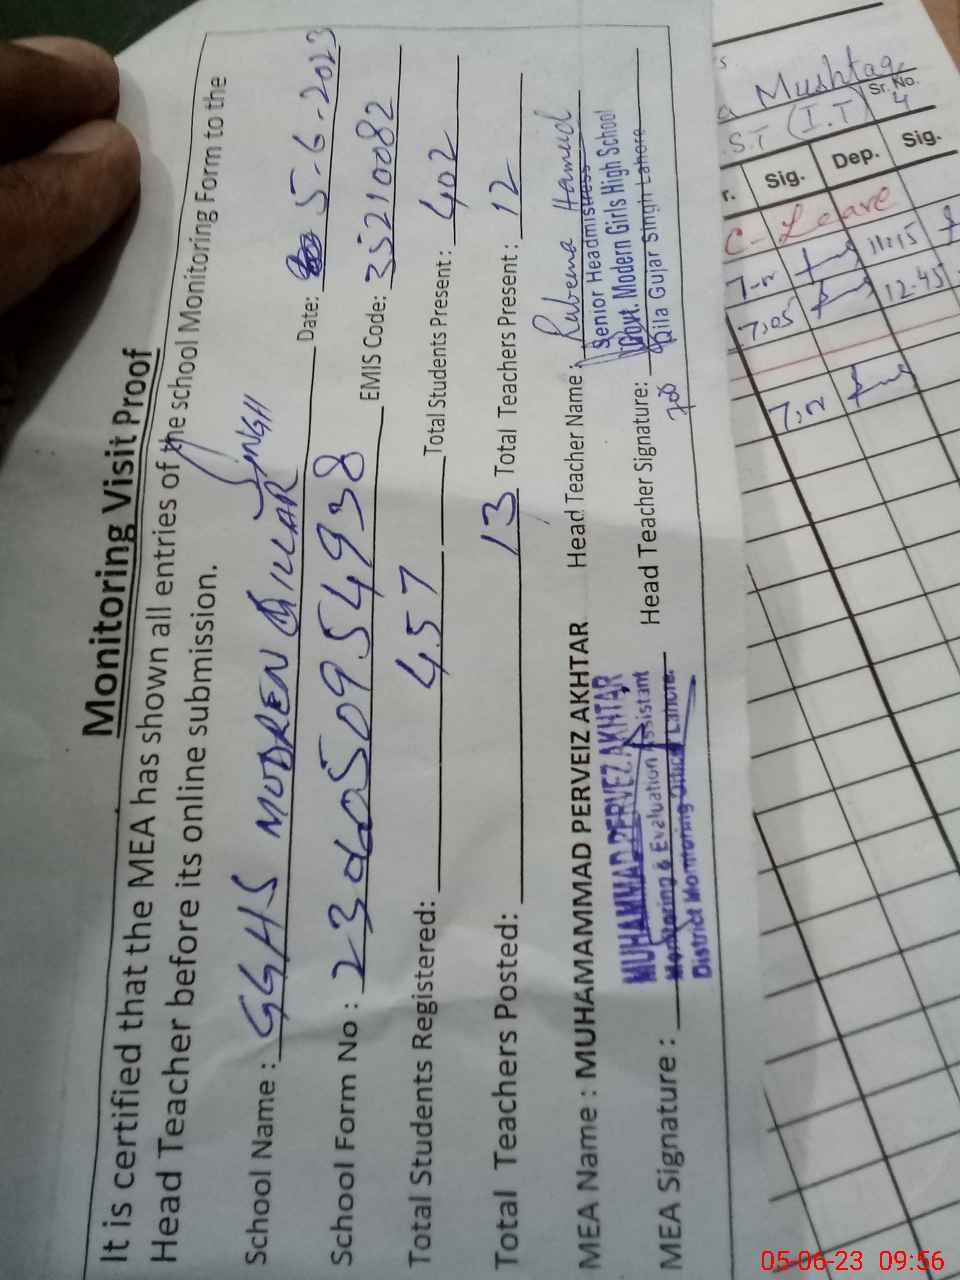 Monitoring Visit Proof
It is certified that the MEA has shown all entries of the school Monitoring Form to the
Head Teacher before its online submission.
School Name : GGHS MODREN QILLAR SINGH Date: 5-6-2023
School Form No : EMIS Code: 35210082
Total Students Registered: 457 Total Students Present: 402
Total Teachers Posted: 13 Total Teachers Present: 12
MEA Name : MUHAMAMMAD PERVEIZ AKHTAR Head Teacher Name: Rubeena Hameed
MEA Signature : Head Teacher Signature:
MUHAMMAD PERVEZ AKHTAR
Monitoring & Evaluation Assistant
District Monitoring Officer Lahore.
Senior Headmistress
Govt. Modern Girls High School
Qila Gujar Singh Lahore
Mushtaq
S.T (I.T) Sr. No. 4
Sig. Dep. Sig.
C-Leave
11:15
7:05 12:45
05-06-23 09:56